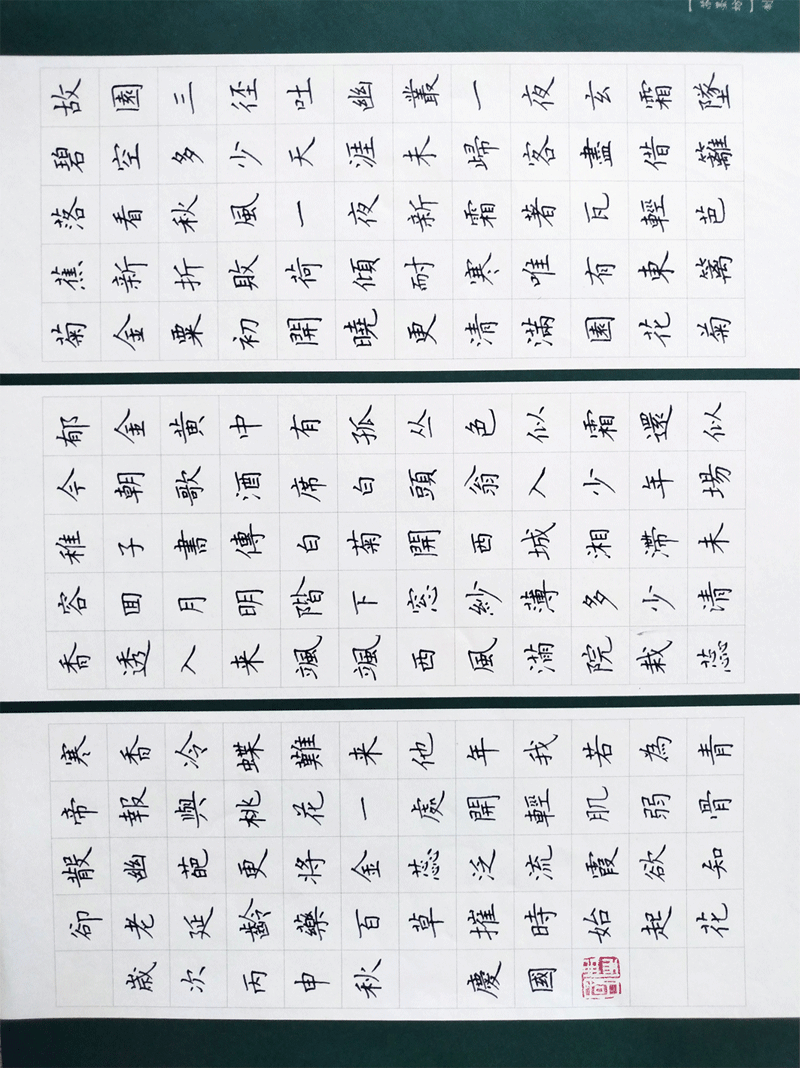 故園三徑吐幽叢一夜玄霜墜
碧空多少天涯未歸客盡借籬
落看秋風一夜新霜著瓦輕芭
蕉新折敗荷傾耐寒唯有東篱
菊金粟初開曉更清滿園花菊
郁金黃中有孤丛色似霜還似
今朝歌酒席白頭翁入少年場
稚子書傳白菊開西城湘滯未
容囬月明階下窓紗薄多少清
香透入来颯颯西風滿院栽蕊
寒香冷蝶難来他年我若為青
帝報與桃花一處開輕肌弱骨
散幽葩更將金蕊泛流霞欲知
卻老延齡藥百草摧時始起花
歲次丙申秋 慶國